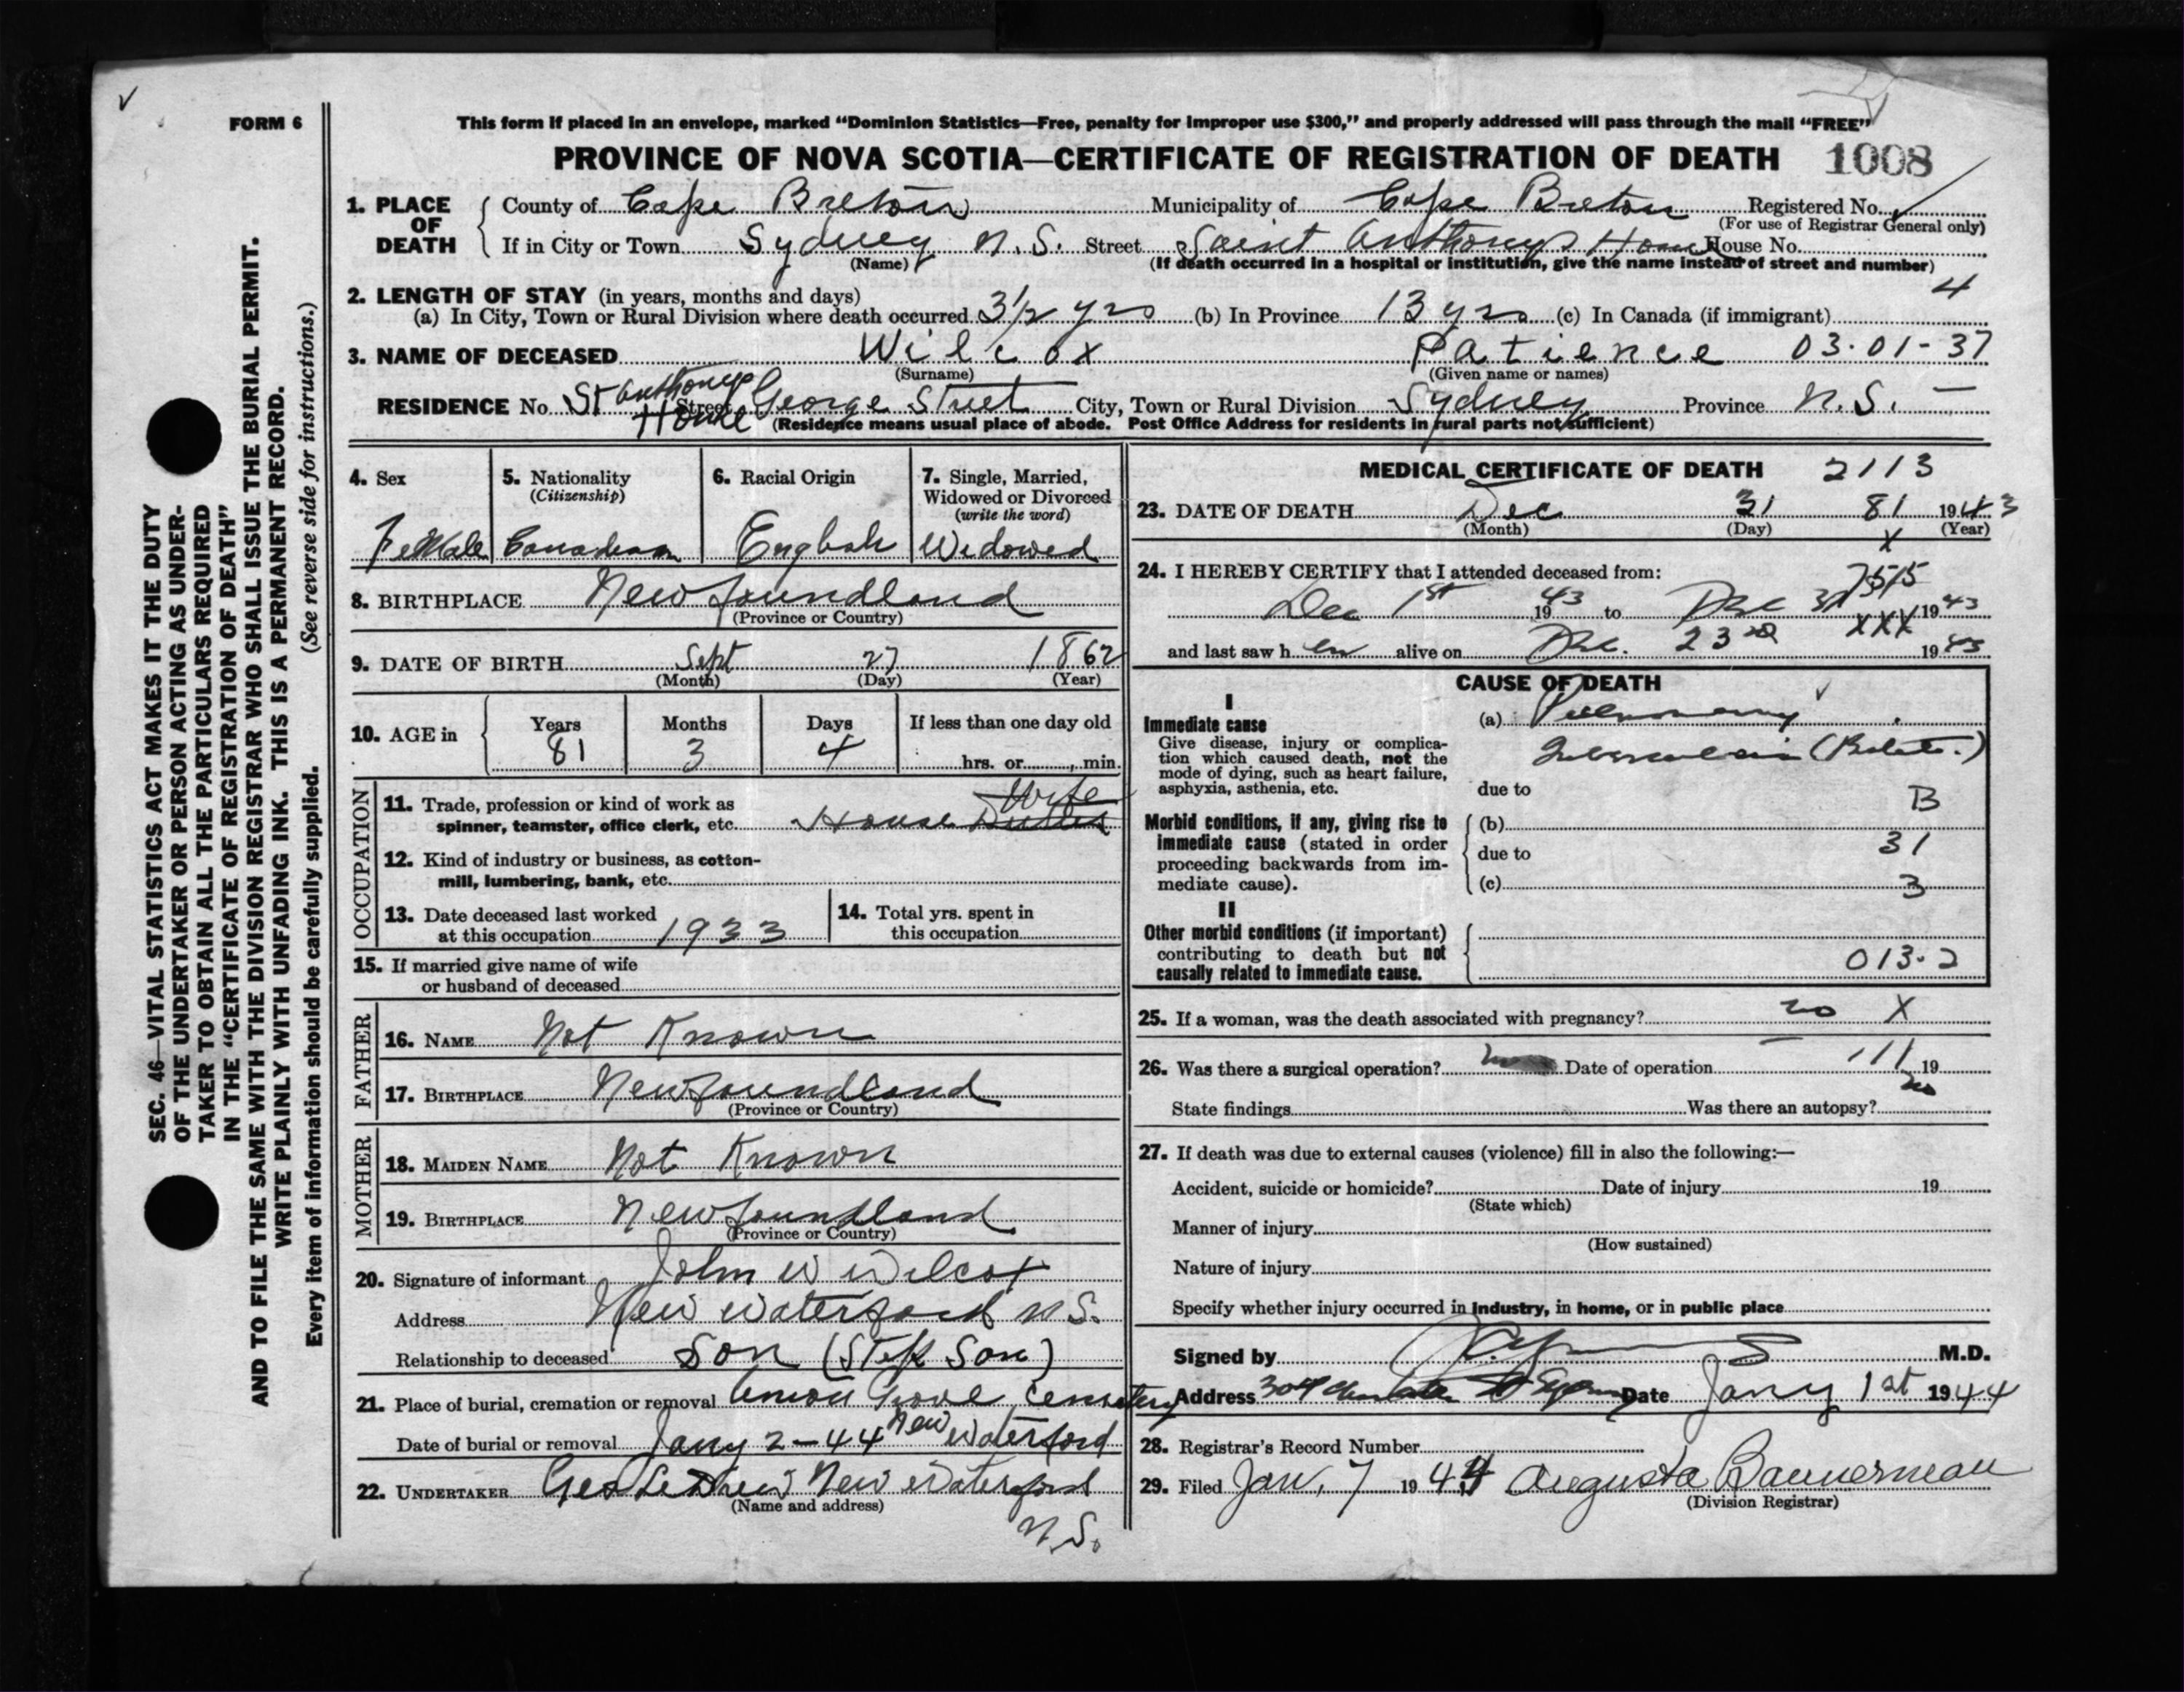 FORM 6
This form if placed in an envelope, marked “Dominion Statistics—Free, penalty for improper use $300,” and properly addressed will pass through the mail “FREE”
PROVINCE OF NOVA SCOTIA—CERTIFICATE OF REGISTRATION OF DEATH 1008
1. PLACE OF DEATH
County of Cape Breton Municipality of Cape Breton Registered No.
(For use of Registrar General only)
If in City or Town Sydney N.S. Street Saint Anthonys Home House No.
(Name) (If death occurred in a hospital or institution, give the name instead of street and number)
2. LENGTH OF STAY (in years, months and days) 4
(a) In City, Town or Rural Division where death occurred 3½ yrs (b) In Province 13 yrs (c) In Canada (if immigrant)
3. NAME OF DECEASED Wilcox Patience 03·01-37
(Surname) (Given name or names)
RESIDENCE No. St Anthonys Home Street George Street City, Town or Rural Division Sydney Province N.S. —
(Residence means usual place of abode. Post Office Address for residents in rural parts not sufficient)
4. Sex
Female
5. Nationality
(Citizenship)
Canadian
6. Racial Origin
English
7. Single, Married,
Widowed or Divorced
(write the word)
Widowed
8. BIRTHPLACE Newfoundland
(Province or Country)
9. DATE OF BIRTH Sept 27 1862
(Month) (Day) (Year)
10. AGE in
Years Months Days If less than one day old
81 3 4
hrs. or min.
OCCUPATION
11. Trade, profession or kind of work as
spinner, teamster, office clerk, etc. House Wife
12. Kind of industry or business, as cotton-
mill, lumbering, bank, etc.
13. Date deceased last worked
at this occupation 1933
14. Total yrs. spent in
this occupation
15. If married give name of wife
or husband of deceased
FATHER
16. NAME Not Known
17. BIRTHPLACE Newfoundland
(Province or Country)
MOTHER
18. MAIDEN NAME Not Known
19. BIRTHPLACE Newfoundland
(Province or Country)
20. Signature of informant John W Wilcox
Address New Waterford N S.
Relationship to deceased Son (Step Son)
21. Place of burial, cremation or removal Union Grove Cemetery
Date of burial or removal Jany 2-44 New Waterford
22. UNDERTAKER Geo New Waterford
(Name and address)
N.S.
MEDICAL CERTIFICATE OF DEATH 2113
23. DATE OF DEATH Dec 31 81 1943
(Month) (Day) (Year)
X
24. I HEREBY CERTIFY that I attended deceased from:
7515
Dec 1st 1943 to Dec 31 1943
XXX
and last saw h er alive on Dec. 23rd 1943
CAUSE OF DEATH
I
Immediate cause
Give disease, injury or complica-
tion which caused death, not the
mode of dying, such as heart failure,
asphyxia, asthenia, etc.
(a) Pulmonary
Tuberculosis
due to
B
Morbid conditions, if any, giving rise to
immediate cause (stated in order
proceeding backwards from im-
mediate cause).
(b)
due to 31
(c) 3
II
Other morbid conditions (if important)
contributing to death but not
causally related to immediate cause.
013·2
25. If a woman, was the death associated with pregnancy? no X
26. Was there a surgical operation? no Date of operation 111 19
State findings Was there an autopsy? no
27. If death was due to external causes (violence) fill in also the following:—
Accident, suicide or homicide? Date of injury 19
(State which)
Manner of injury
(How sustained)
Nature of injury
Specify whether injury occurred in industry, in home, or in public place
Signed by M.D.
Address 304 Charlotte St Sydney Date Jany 1st 1944
28. Registrar's Record Number
29. Filed Jan. 7 1944 Augusta
(Division Registrar)
SEC. 46—VITAL STATISTICS ACT MAKES IT THE DUTY
OF THE UNDERTAKER OR PERSON ACTING AS UNDER-
TAKER TO OBTAIN ALL THE PARTICULARS REQUIRED
IN THE “CERTIFICATE OF REGISTRATION OF DEATH”
AND TO FILE THE SAME WITH THE DIVISION REGISTRAR WHO SHALL ISSUE THE BURIAL PERMIT.
WRITE PLAINLY WITH UNFADING INK. THIS IS A PERMANENT RECORD.
Every item of information should be carefully supplied. (See reverse side for instructions.)